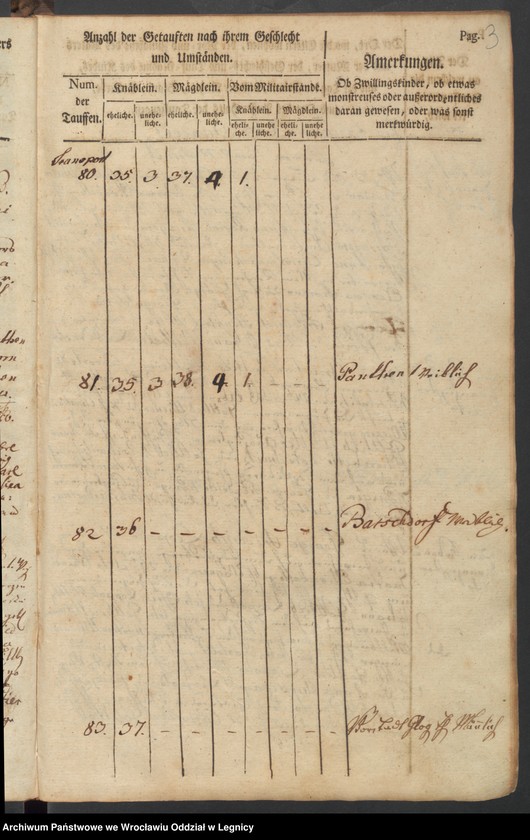 Anzahl der Getauften nach ihrem Geschlecht
und Umständen.
Pag. 3
Num.
der
Tauffen.
Knäblein.
Mägdlein.
Vom Militairstande.
Knäblein.
Mägdlein.
eheliche.
unehe-
liche.
eheliche.
unehe-
liche.
eheli-
che.
unehe
liche.
eheli-
che.
unehe
liche.
Anmerkungen.
Ob Zwillingskinder, ob etwas
monstreuses oder außerordentliches
daran gewesen, oder was sonst
merkwürdig.
Transport
80. 35. 3. 37. 4 1.
81. 35. 3 38. 4 1. - - - Panthen
82 36 - - - - - - - Barschdorf
83. 37. - - - - - - -
Archiwum Państwowe we Wrocławiu Oddział w Legnicy